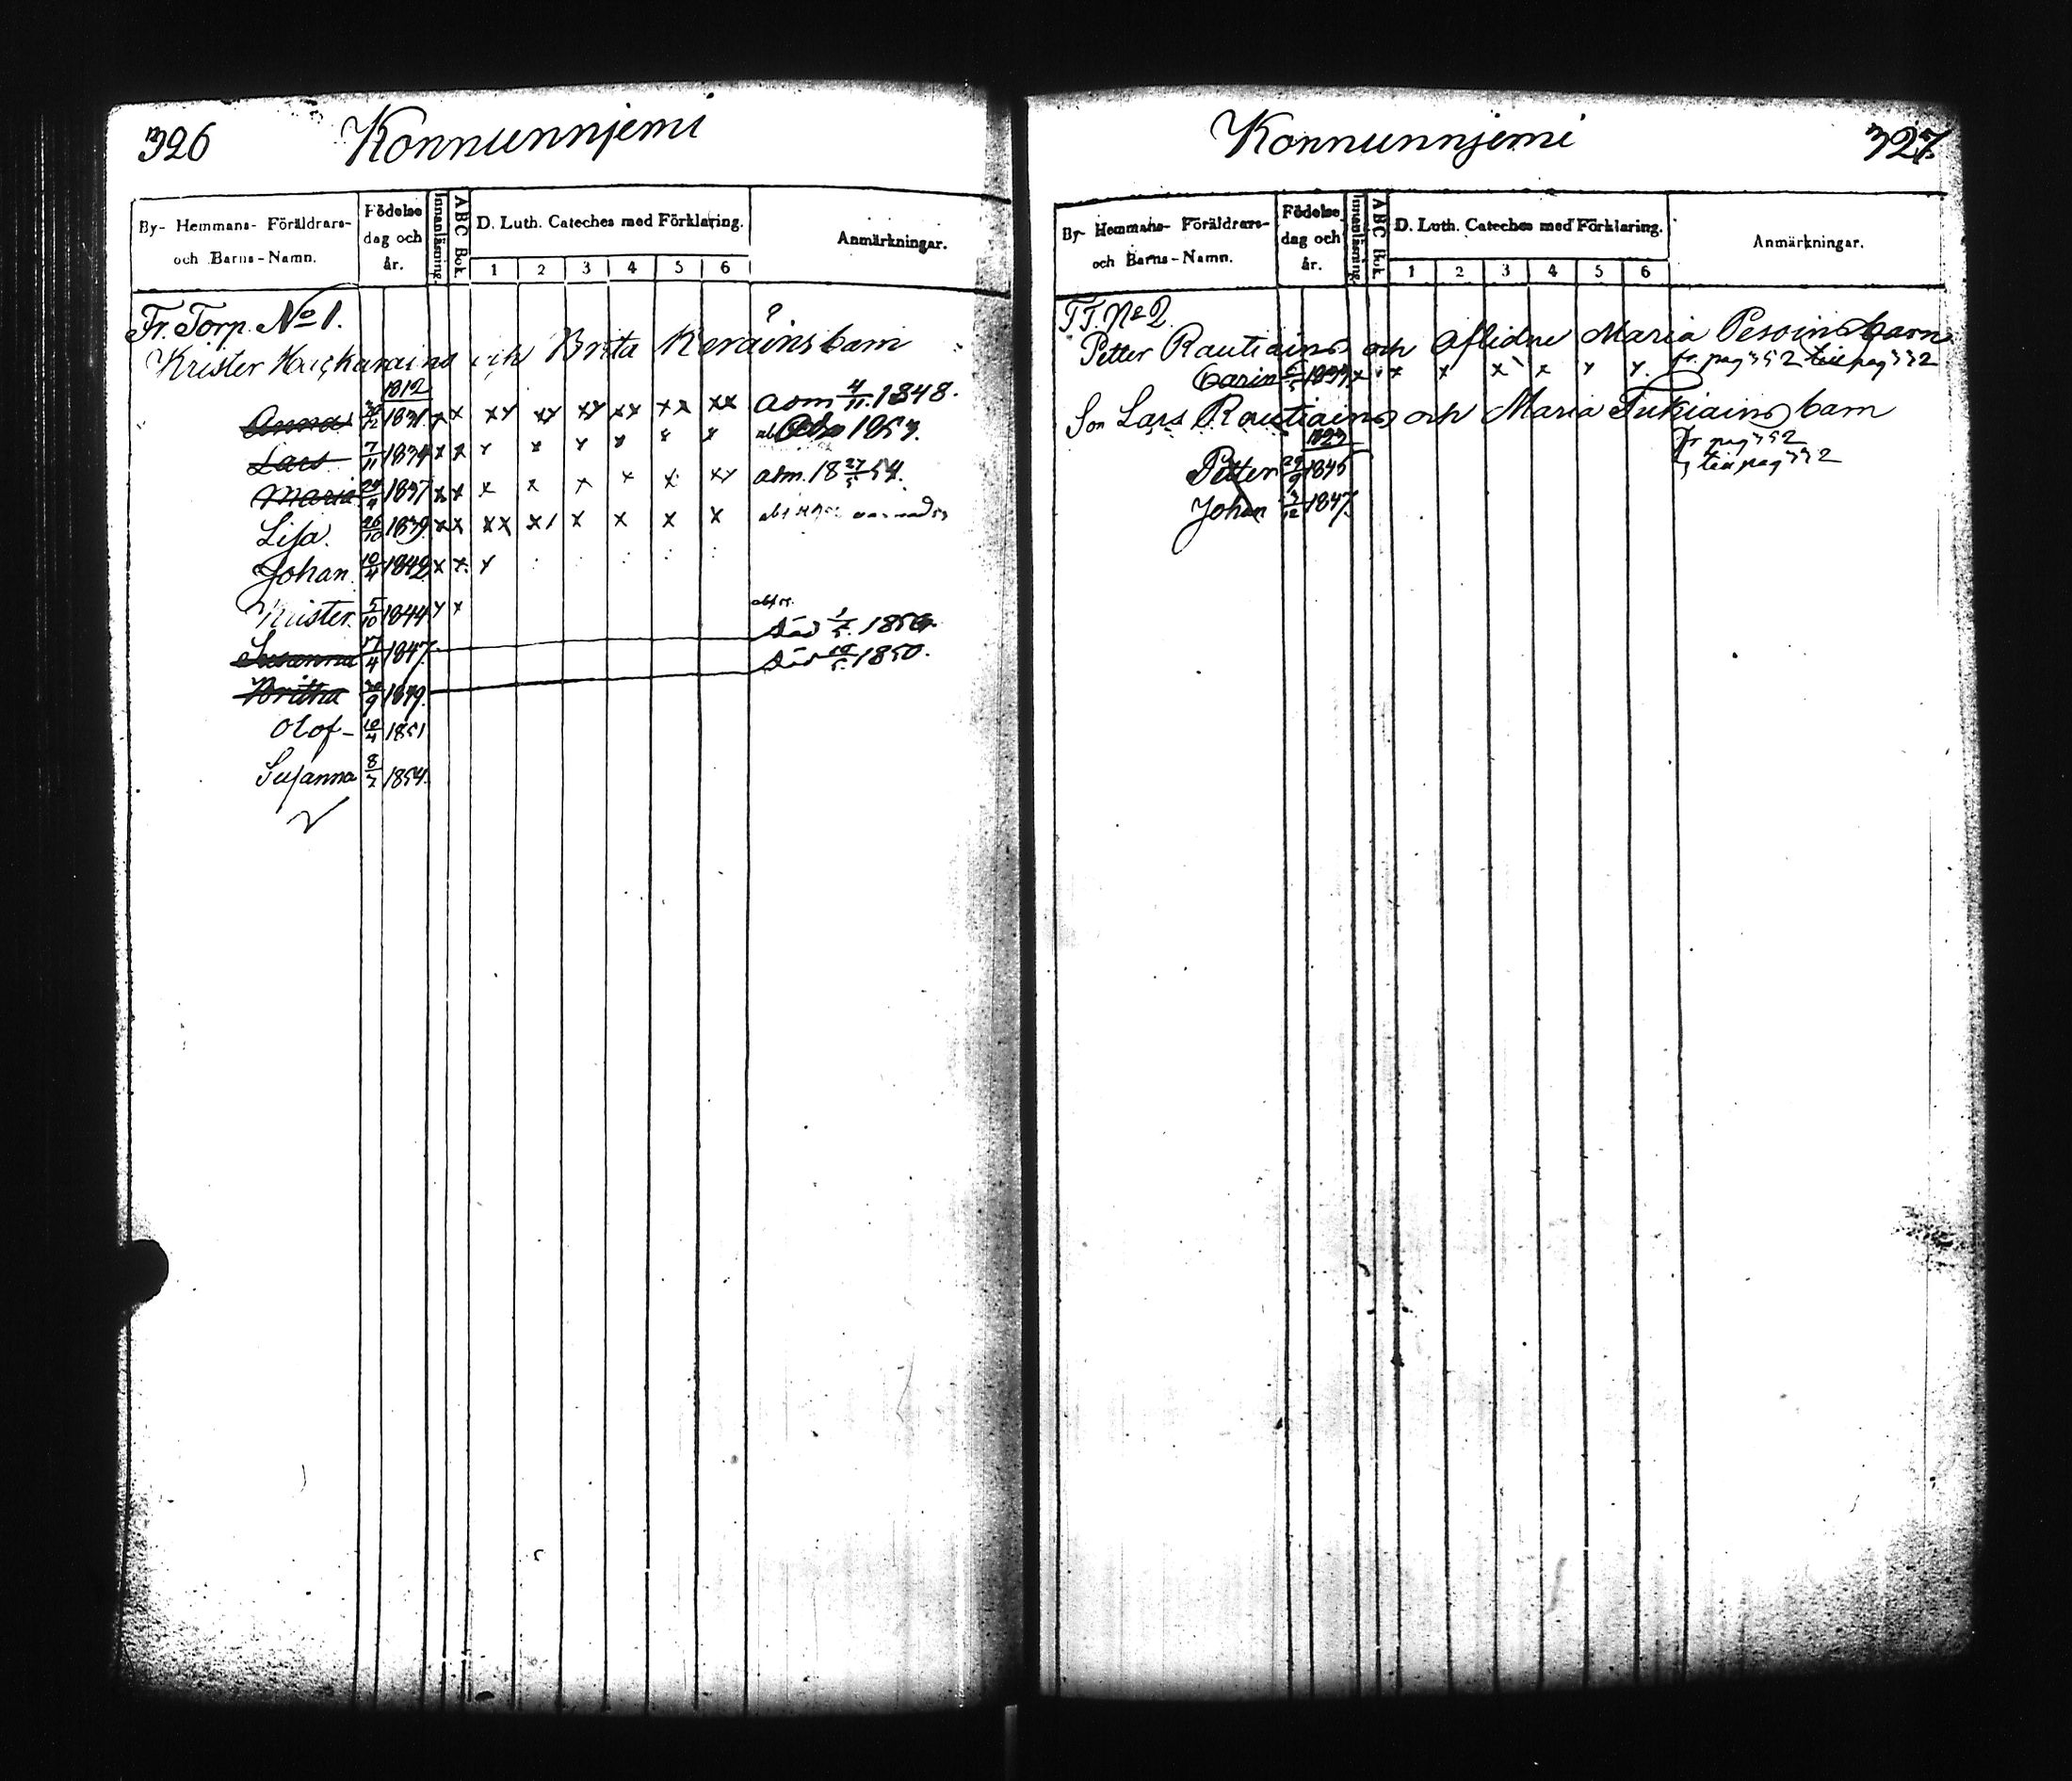 326 Konnunnjemi
By- Hemmans- Föräldrars- och Barns-Namn. Födelse dag och år. Innanläsning. ABC Bok. D. Luth. Cateches med Förklaring. 1 2 3 4 5 6 Anmärkningar.
Fr. Torp. No 1.
Krister och Brita Keräins barn
1812
Anna 1831. x x xx xx xx xx xx xx adm 4/11 1848.
Lars 7/11 1834 x x x x x x x x 1853.
Maria 1837 x x x x x x x xx adm. 18 27/5 54.
Lisa. 26/10 1839 x x xx x x x x x
Johan 10/4 1842 x x x
Krister. 5/10 1844 x x
Susanna 17/4 1847. Död 1856.
Britha 30/9 1849. Död 1850.
Olof- 10/4 1851
Susanna 8/7 1854.
Konnunnjemi 327.
By- Hemmans- Föräldrars- och Barns-Namn. Födelse dag och år. Innanläsning. ABC Bok. D. Luth. Cateches med Förklaring. 1 2 3 4 5 6 Anmärkningar.
TT. No 2
Petter Rautiains och Aflidne Maria Pesoins barn
Carin x x x x x x x fr. pag 352 till pag 332
Son Lars Rautiains och Maria Tukiains barn
1823 fr pag 352
Petter 29/9 1845 till pag 332
Johan 1847.